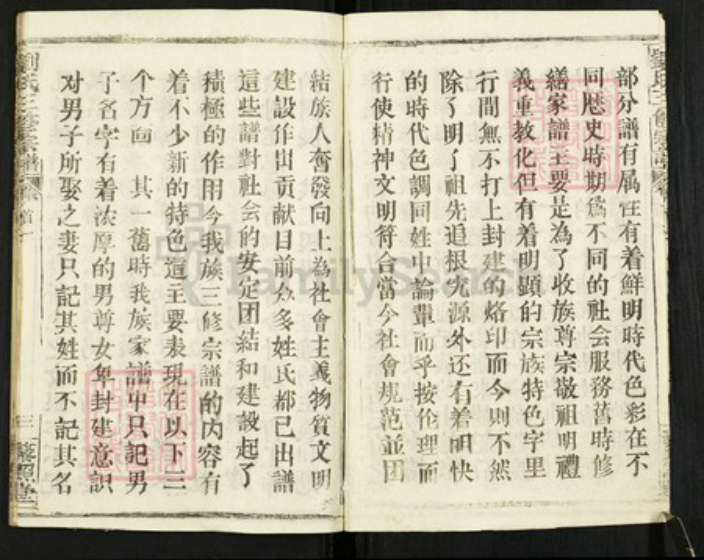 部分譜有属性有着鮮明時代色彩在不
同歷史時期爲不同的社会服務舊時修
繕家譜主要是為了收族尊宗敬祖明禮
義重教化但有着明顯的宗族特色字里
行間無不打上封建的烙印而今則不然
除了明了祖先追根究源外还有着明快
的時代色調同姓中論輩而乎按伦理而
行使精神文明符合當今社會規范並团
結族人奮發向上為社會主義物質文明
建設作出貢献目前众多姓氏都已出譜
這些譜對社会的安定团結和建設起了
積極的作用今我族三修宗譜的内容有
着不少新的特色這主要表現在以下三
个方面 其一舊時我族家譜中只記男
子名字有着浓厚的男尊女卑封建意識
对男子所娶之妻只記其姓而不記其名
劉氏三修宗譜
三
藜照堂
FamilySearch